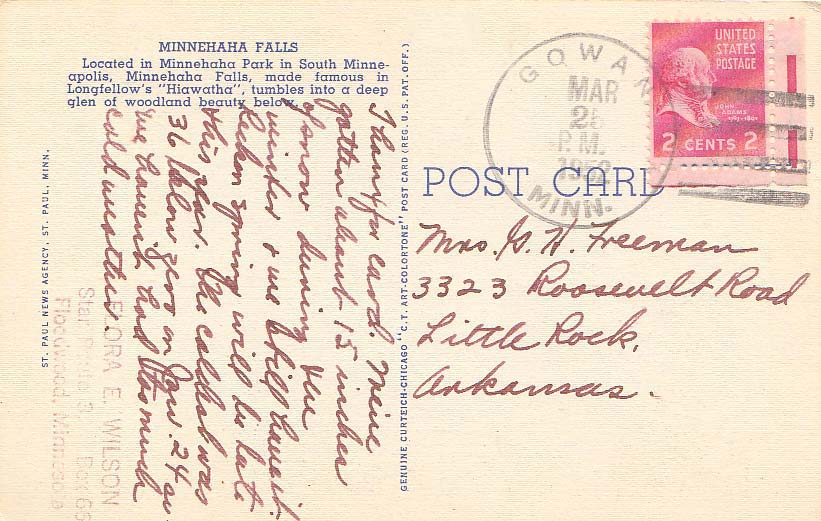 MINNEHAHA FALLS
Located in Minnehaha Park in South Minne-
apolis, Minnehaha Falls, made famous in
Longfellow's "Hiawatha", tumbles into a deep
glen of woodland beauty below.
Thanx for card. We've
gotten about 15 inches
of snow during the
winter & we still have it.
Reckon spring will be late
this year. The coldest was
36 below zero on Jan. 24 as
we haven't had too much
cold weather.
FLORA E. WILSON
Star Route 3, Box 65
Floodwood, Minnesota
ST. PAUL NEWS AGENCY, ST. PAUL, MINN.
GENUINE CURTEICH-CHICAGO "C.T. ART-COLORTONE" POST CARD (REG. U.S. PAT. OFF.)
POST CARD
GOWAN
MAR
25
P.M.
1952
MINN.
UNITED
STATES
POSTAGE
JOHN
ADAMS
2 CENTS 2
Mrs. G. H. Freeman
3323 Roosevelt Road
Little Rock,
Arkansas.